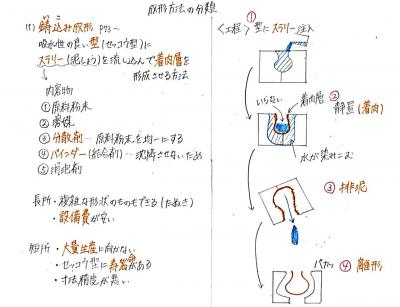 成形方法の分類
(1) 鋳込み成形 P73~
吸水性の良い型(セッコウ型)に
スラリー(泥しょう)を流し込んで着肉層を
形成させる方法
内容物
① 原料粉末
② 溶媒
③ 分散剤… 原料粉末を均一にする
④ バインダー(結合剤)… 沈降させないため
⑤ 消泡剤
長所・複雑な形状のものもできる(たぬき)
・設備費が安い
短所・大量生産に向かない
・セッコウ型に寿命がある
・寸法精度が悪い
<工程> ① 型にスラリー注入
いらない
着肉層
② 静置(着肉)
水が染みこむ
③ 排泥
パカッ
④ 離形